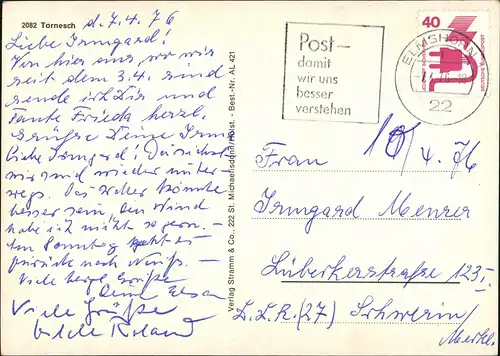 2082 Tornesch
d. 7.4.76
Liebe Irmgard!
Von hier aus, wo wir
seit dem 3.4. sind
sende ich Dir und
Tante Frieda herzl.
Grüße Deine Irma
Liebe Irmgard! Du siehst
wir sind wieder unter-
wegs. Das Wetter könnte
besser sein, den Wind
habe ich nicht so gern. –
Am Sonntag geht es
zurück nach
Viele herzl. Grüße
Deine
Viele Grüße
Roland
Verlag Stramm & Co., 222 St. Michaelisdonn/Holst. - Best.-Nr. AL 421
Post –
damit
wir uns
besser
verstehen
ELMSHORN
22
40
DEUTSCHE BUNDESPOST
10/4.76
Frau
Irmgard Menzer
Lübeckerstraße 123 I
D.D.R. (27) Schwerin/
Meckl.